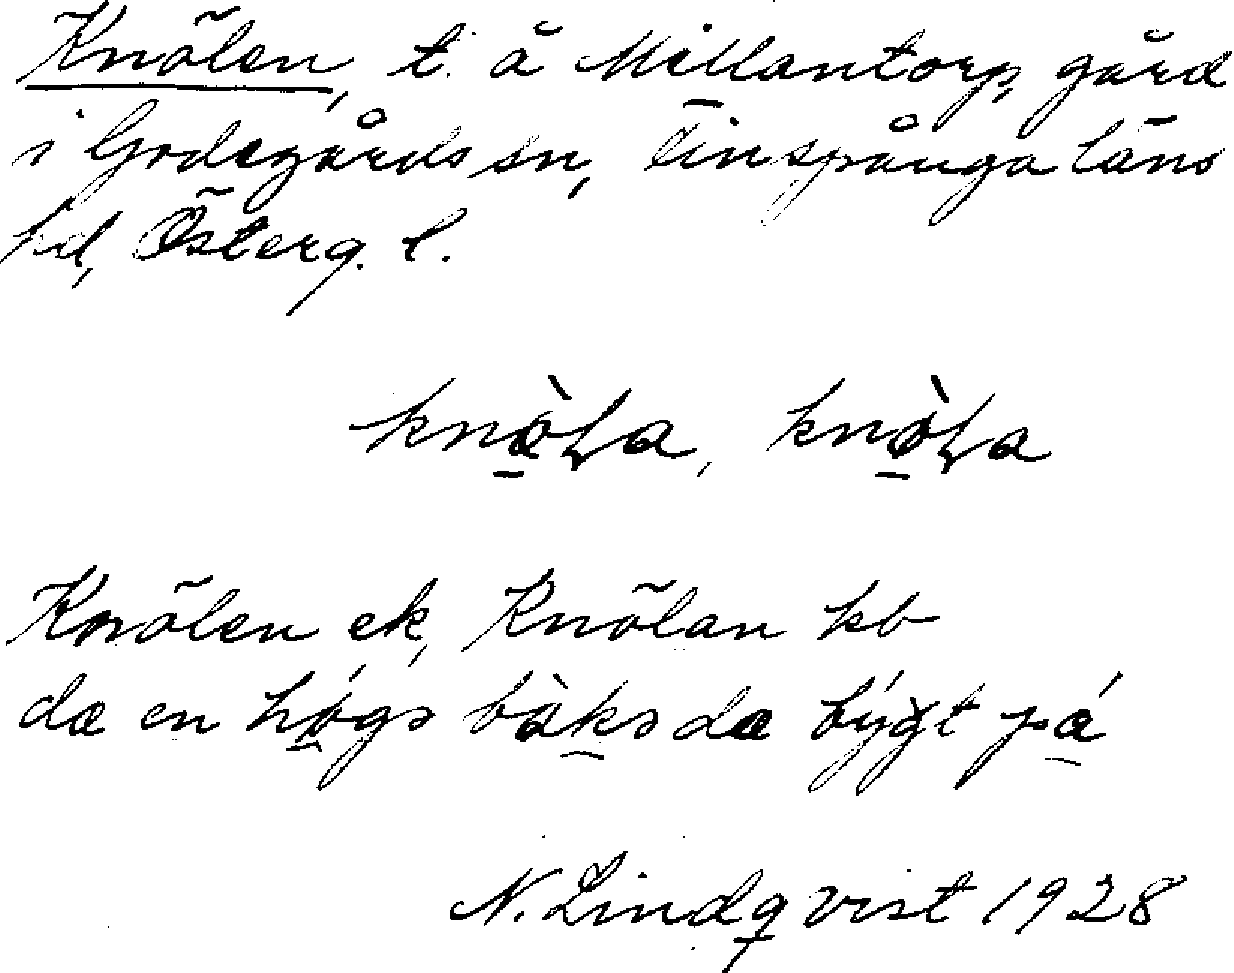 Knölen, t. å Mellantorp, gård
i Godegårds sn, Finspånga läns
hd, Österg. l.
Knölen ek, Knölan hb
da en högs bàks da býgt på
N. Lindqvist 1928